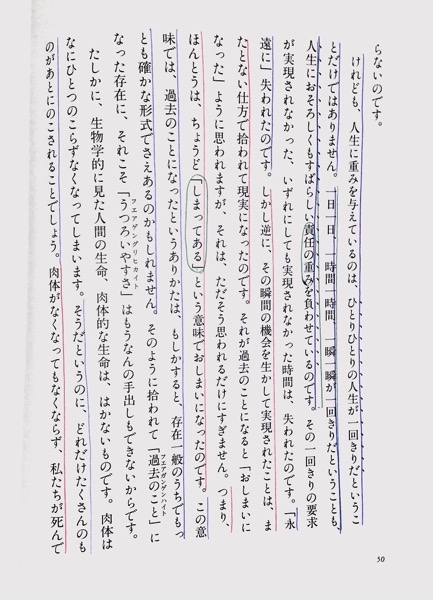 らないのです。
けれども、人生に重みを与えているのは、ひとりひとりの人生が一回きりだというこ
とだけではありません。一日一日、一時間一時間、一瞬一瞬が一回きりだということも、
人生におそろしくもすばらしい責任の重みを負わせているのです。その一回きりの要求
が実現されなかった、いずれにしても実現されなかった時間は、失われたのです。「永
遠に」失われたのです。しかし逆に、その瞬間の機会を生かして実現されたことは、ま
たとない仕方で拾われて現実になったのです。それが過去のことになると「おしまいに
なった」ように思われますが、それは、ただそう思われるだけにすぎません。つまり、
ほんとうは、ちょうど「しまってある」という意味でおしまいになったのです。この意
味では、過去のことになったというありかたは、もしかすると、存在一般のうちでもっ
とも確かな形式でさえあるのかもしれません。そのように拾われて「過去のこと」に
フェアガンゲンハイト
なった存在に、それこそ「うつろいやすさ」はもうなんの手出しもできないからです。
フェアゲングリヒカイト
たしかに、生物学的に見た人間の生命、肉体的な生命は、はかないものです。肉体は
なにひとつのこらずなくなってしまいます。そうだというのに、どれだけたくさんのも
のがあとにのこされることでしょう。肉体がなくなってもなくならず、私たちが死んで
50